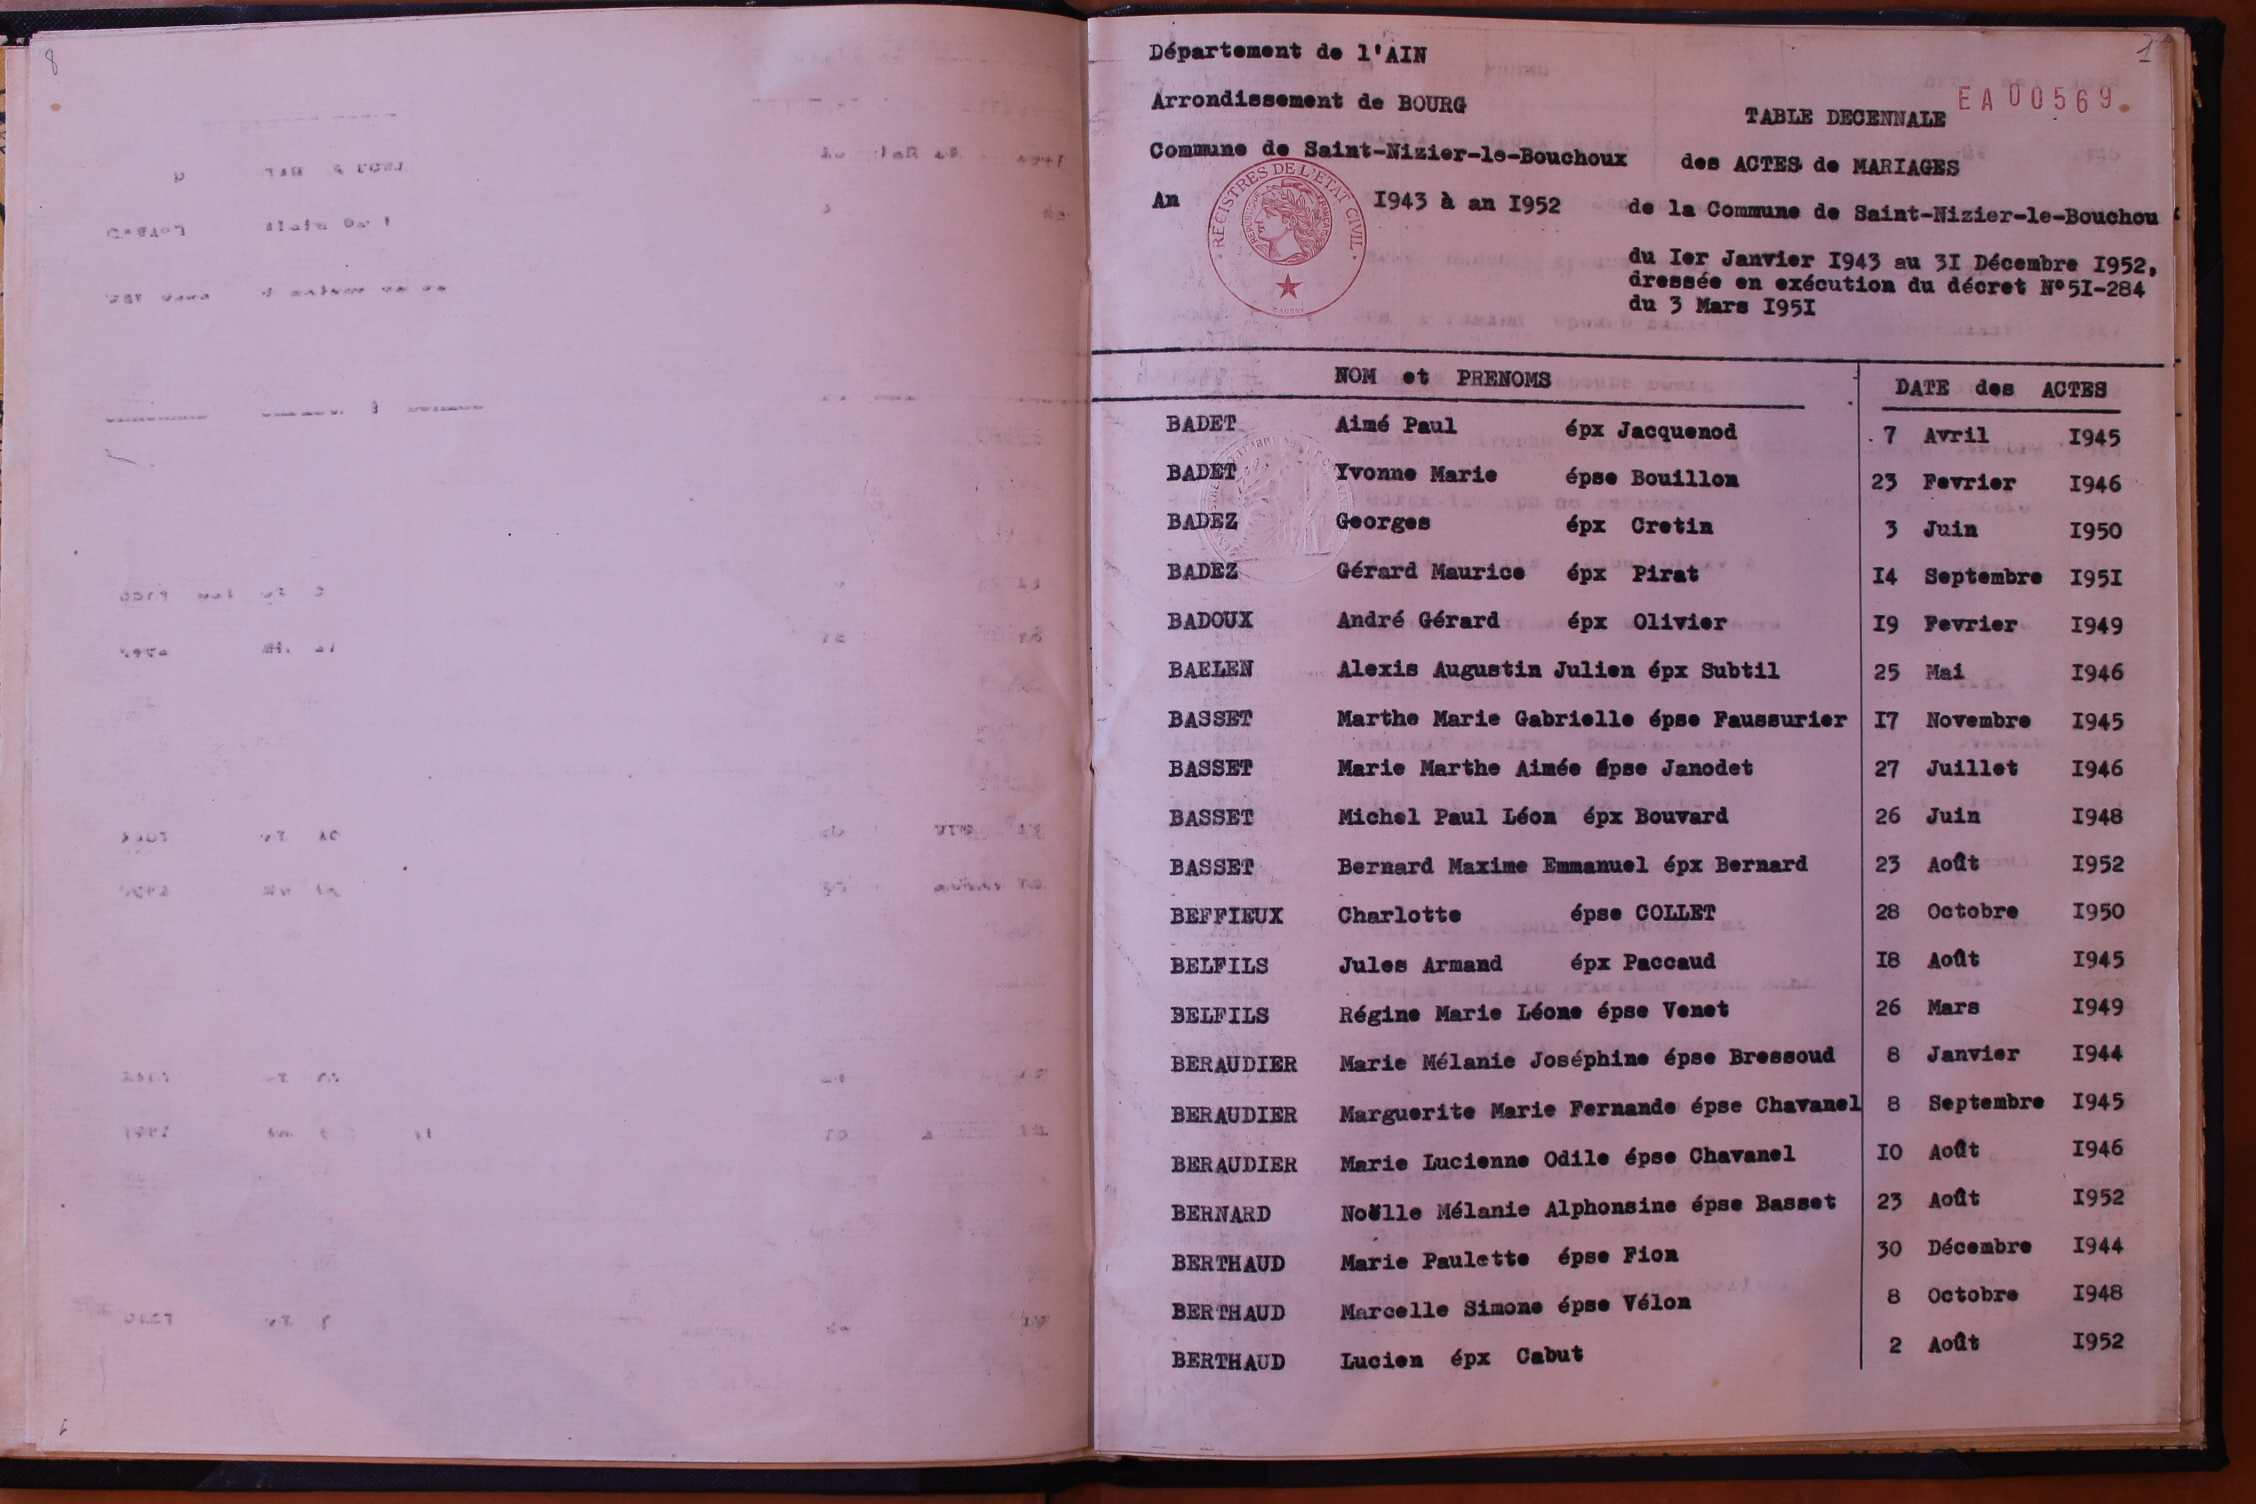 8
Département de l'AIN
1
Arrondissement de BOURG
EA00569
TABLE DECENNALE
Commune de Saint-Nizier-le-Bouchoux
des ACTES de MARIAGES
REGISTRES DE L'ETAT CIVIL
REPUBLIQUE FRANCAISE
An I943 à an I952
de la Commune de Saint-Nizier-le-Bouchou
du Ier Janvier I943 au 3I Décembre I952,
dressée en exécution du décret N°5I-284
du 3 Mars I95I
NOM et PRENOMS DATE des ACTES
BADET Aimé Paul épx Jacquenod 7 Avril I945
BADET Yvonne Marie épse Bouillon 23 Fevrier I946
BADEZ Georges épx Cretin 3 Juin I950
BADEZ Gérard Maurice épx Pirat I4 Septembre I95I
BADOUX André Gérard épx Olivier I9 Fevrier I949
BAELEN Alexis Augustin Julien épx Subtil 25 Mai I946
BASSET Marthe Marie Gabrielle épse Faussurier I7 Novembre I945
BASSET Marie Marthe Aimée épse Janodet 27 Juillet I946
BASSET Michel Paul Léon épx Bouvard 26 Juin I948
BASSET Bernard Maxime Emmanuel épx Bernard 23 Août I952
BEFFIEUX Charlotte épse COLLET 28 Octobre I950
BELFILS Jules Armand épx Paccaud I8 Août I945
BELFILS Régine Marie Léone épse Venet 26 Mars I949
BERAUDIER Marie Mélanie Joséphine épse Bressoud 8 Janvier I944
BERAUDIER Marguerite Marie Fernande épse Chavanel 8 Septembre I945
BERAUDIER Marie Lucienne Odile épse Chavanel I0 Août I946
BERNARD Noëlle Mélanie Alphonsine épse Basset 23 Août I952
BERTHAUD Marie Paulette épse Fion 30 Décembre I944
BERTHAUD Marcelle Simone épse Vélon 8 Octobre I948
BERTHAUD Lucien épx Cabut 2 Août I952